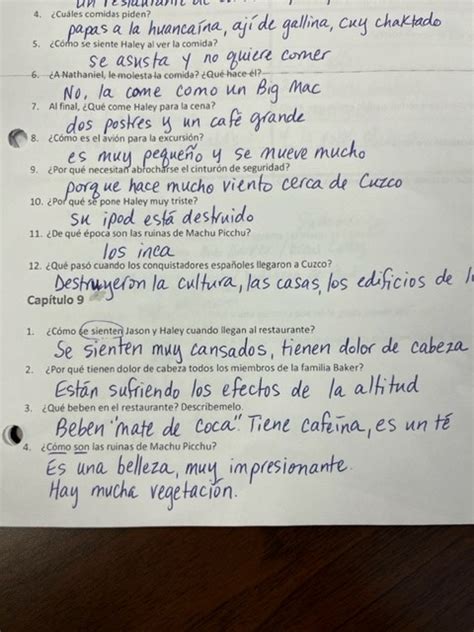 un restaurante de
4. ¿Cuáles comidas piden?
papas a la huancaína, ají de gallina, cuy chaktado
5. ¿Cómo se siente Haley al ver la comida?
se asusta y no quiere comer
6. ¿A Nathaniel, le molesta la comida? ¿Qué hace él?
No, la come como un Big Mac
7. Al final, ¿Qué come Haley para la cena?
dos postres y un café grande
8. ¿Cómo es el avión para la excursión?
es muy pequeño y se mueve mucho
9. ¿Por qué necesitan abrocharse el cinturón de seguridad?
porque hace mucho viento cerca de Cuzco
10. ¿Por qué se pone Haley muy triste?
su ipod está destruido
11. ¿De qué época son las ruinas de Machu Picchu?
los inca
12. ¿Qué pasó cuando los conquistadores españoles llegaron a Cuzco?
Destruyeron la cultura, las casas, los edificios de
Capítulo 9
1. ¿Cómo se sienten Jason y Haley cuando llegan al restaurante?
Se sienten muy cansados, tienen dolor de cabeza
2. ¿Por qué tienen dolor de cabeza todos los miembros de la familia Baker?
Están sufriendo los efectos de la altitud
3. ¿Qué beben en el restaurante? Descríbemelo.
Beben "mate de coca". Tiene cafeína, es un té
4. ¿Cómo son las ruinas de Machu Picchu?
Es una belleza, muy impresionante.
Hay mucha vegetación.